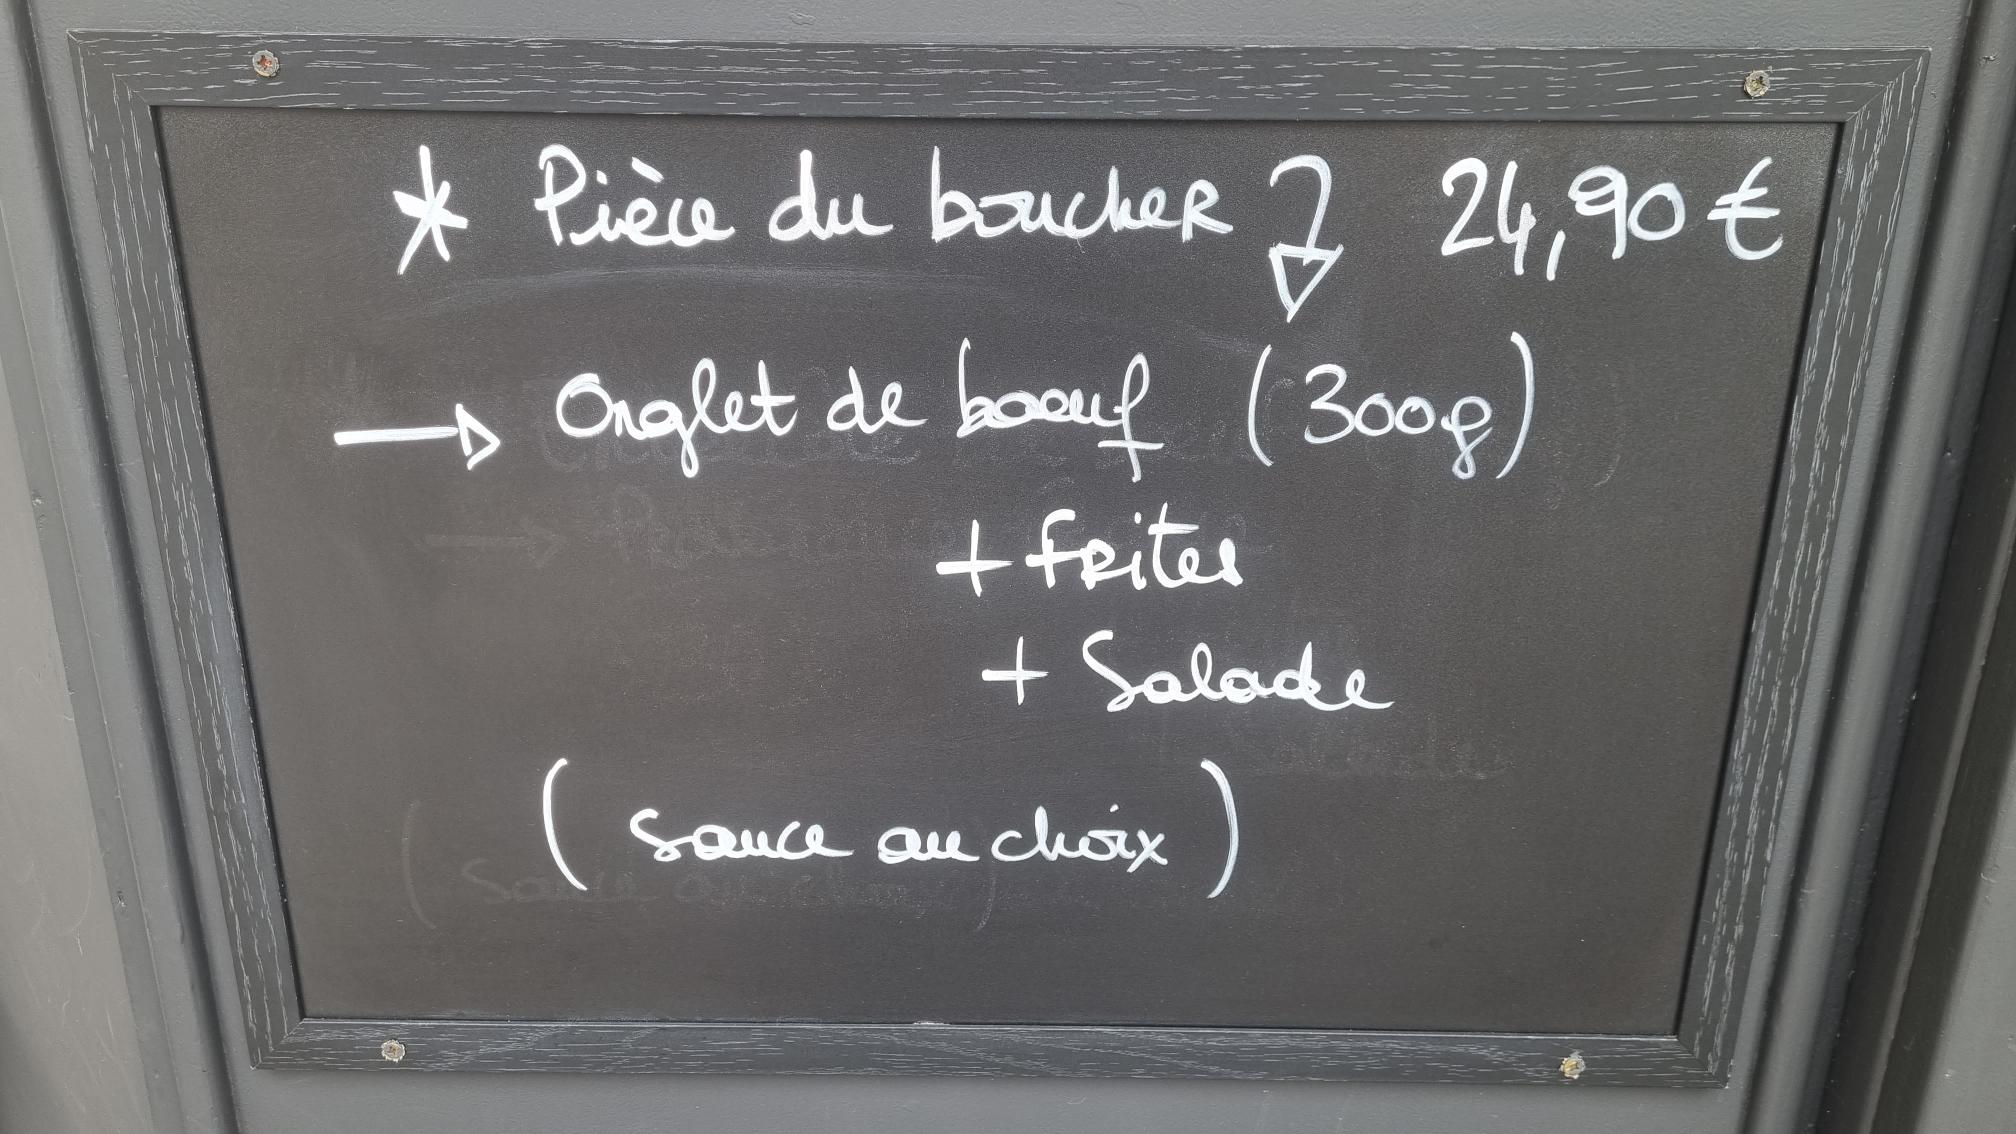 * Pièce du boucher 24,90 €
→ Onglet de boeuf (300g)
+ frites
+ Salade
(sauce au choix)